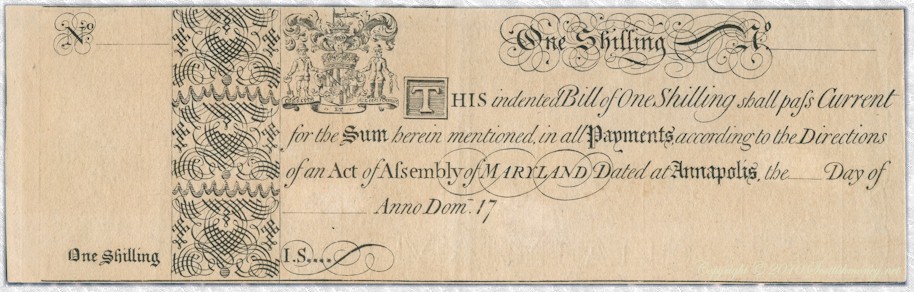 No
One Shilling No
THIS indented Bill of One Shilling shall paſs Current
for the Sum herein mentioned, in all Payments, according to the Directions
of an Act of Aſsembly of MARYLAND Dated at Annapolis, the ___ Day of
___ Anno Dom. 17
One Shilling
I.S....